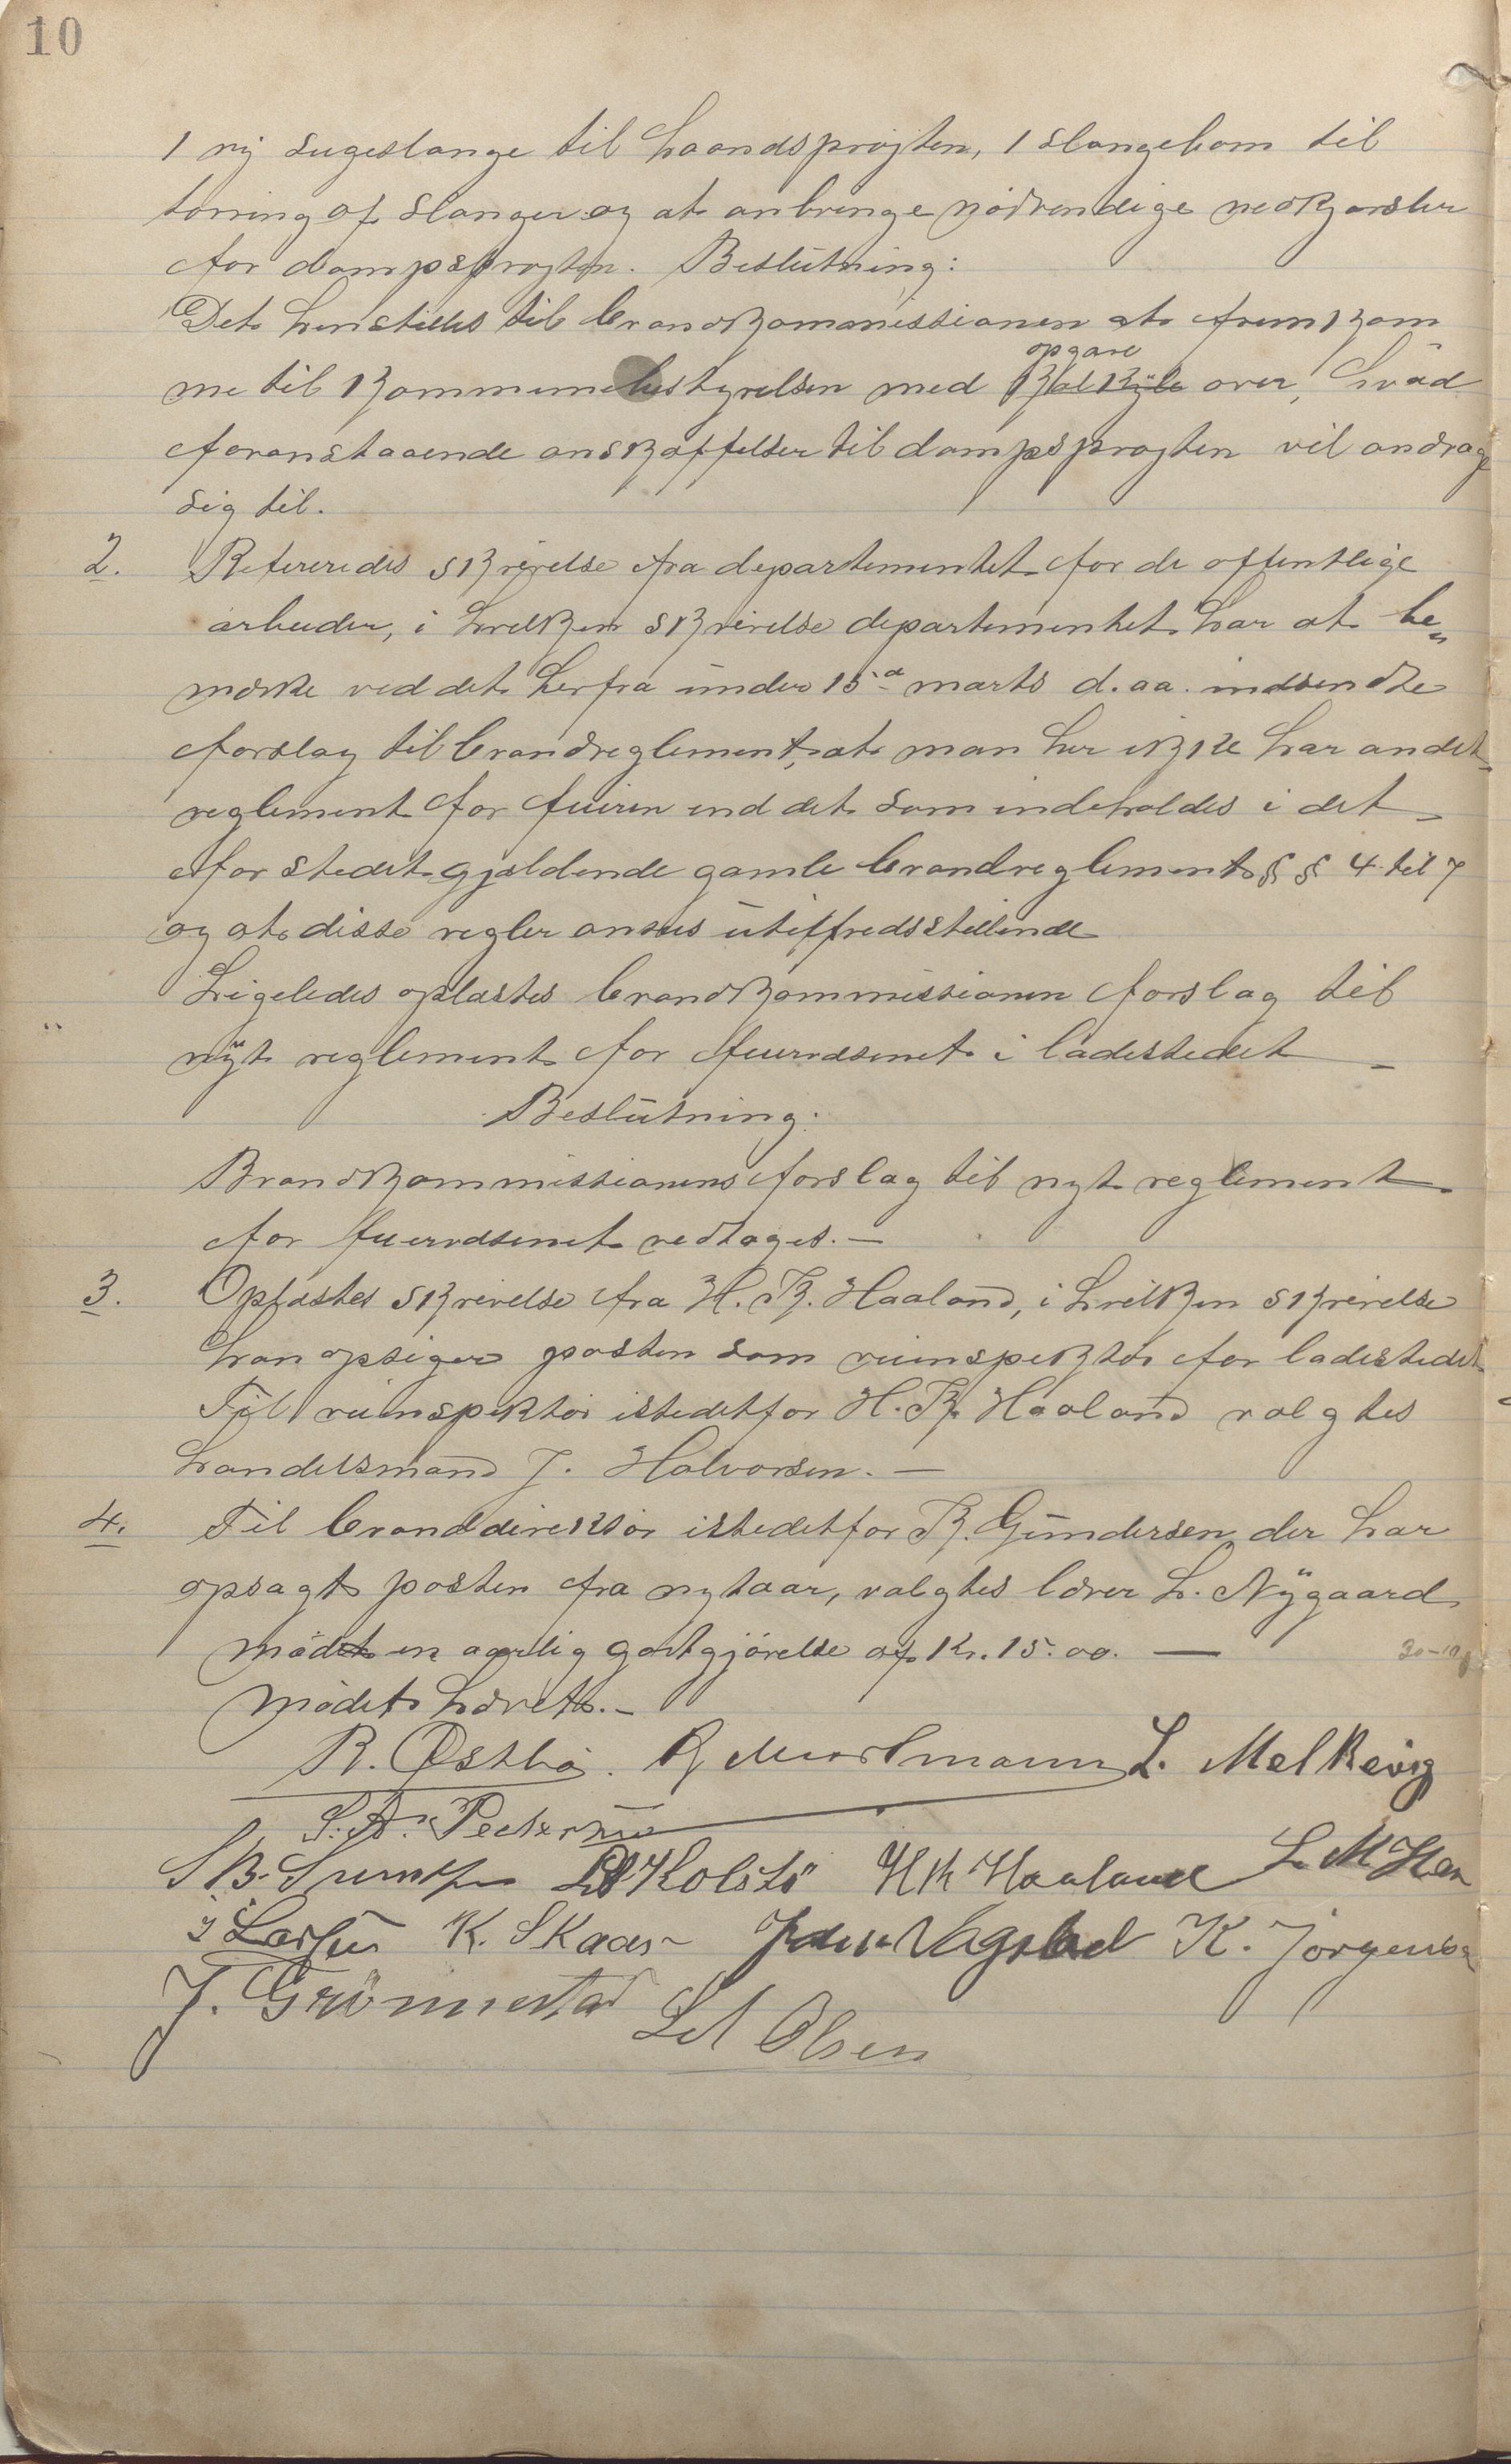 10
1 ny sugeslange til haandsprøjten, 1 slangebom til
tørring af slanger og at anbringe nødvendige nedkjørsler
for dampsprøjten. Beslutning:
Det henstilles til brandkommissionen at fremkom
me til kommunebestyrelsen med kalkyle opgave over, hvad
foranstaaende anskaffelser til dampsprøjten vil andrage
sig til.
2. Refereredes skrivelse fra departementet for de offentlige
arbeider, i hvilken skrivelse departementet har at be„
mærke ved det herfra under 15de marts d. aa. indsendte
forslag til brandreglement, at man her ikke har andet
reglement for fuiren end det som indeholdes i det
for stedet gjældende gamle brandreglement §§ 4 til 7
og at disse regler ansees utilfredsstillende
Ligeledes oplæstes brandkommissionen forslag til
nyt reglement for fuirvæsenet i ladestedet
Beslutning:
Brandkommissionens forslag til nyt reglement
for fuirvæsenet vedtages. —
3. Oplæstes skrivelse fra H. K. Haaland, i hvilken skrivelse
han opsiger posten som ruinspektør for ladestedet
Til ruinspektør istedetfor H. K. Haaland valgtes
handelsmand J. Halvorsen. —
4. Til branddirektør istedetfor K. Gundersen der har
opsagt posten fra nytaar, valgtes lærer L. Nygaard
mod en aarlig godtgjørelse af Kr. 15.00. —
Mødet hævet. —
R. Østbø. L. Melkevig
S. A. Pedersen
Kolstø H K Haaland
Larsen K. Skaar Vagstad K. Jørgensen
J. Grønnestad
Olsen